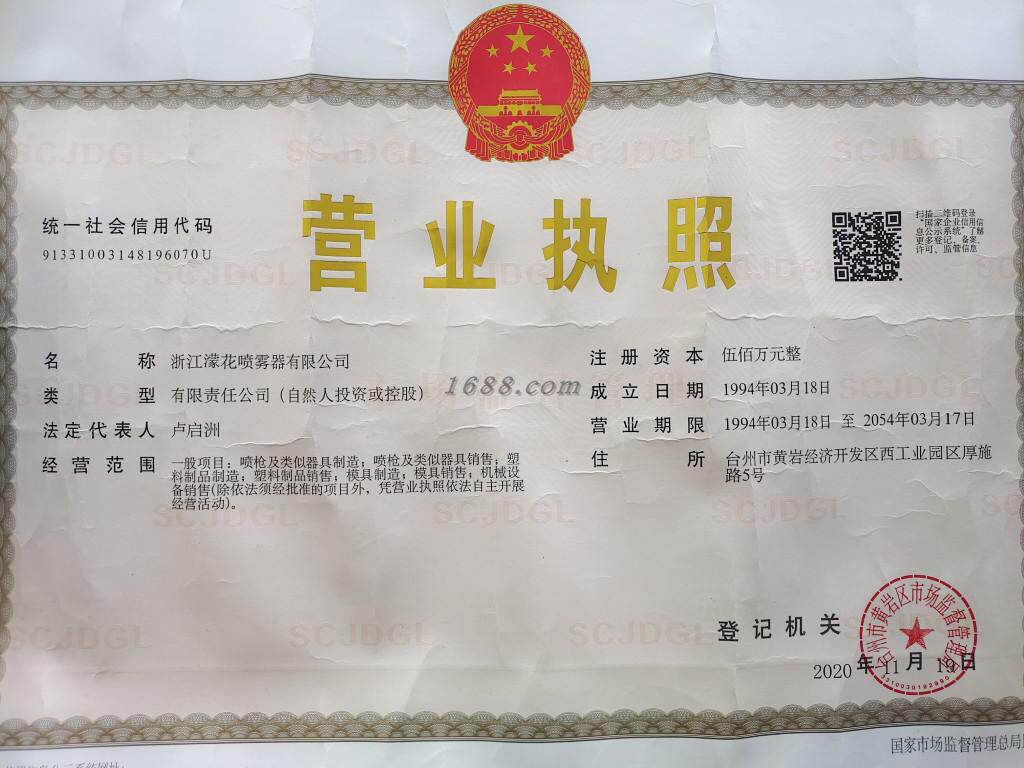 SCJDGL SCJDGL SCJDGL SCJDGL
营业执照
统一社会信用代码
91331003148196070U
扫描二维码登录
"国家企业信用信
息公示系统"了解
更多登记、备案、
许可、监管信息
名称 浙江濛花喷雾器有限公司
类型 有限责任公司（自然人投资或控股）
法定代表人 卢启洲
经营范围 一般项目：喷枪及类似器具制造；喷枪及类似器具销售；塑
料制品制造；塑料制品销售；模具制造；模具销售；机械设
备销售(除依法须经批准的项目外，凭营业执照依法自主开展
经营活动)。
1688.com
注册资本 伍佰万元整
成立日期 1994年03月18日
营业期限 1994年03月18日 至 2054年03月17日
住所 台州市黄岩经济开发区西工业园区厚施
路5号
SCJDGL SCJDGL SCJDGL
SCJDGL SCJDGL SCJDGL
登记机关
台州市黄岩区市场监督管理局
2020年11月19日
国家市场监督管理总局